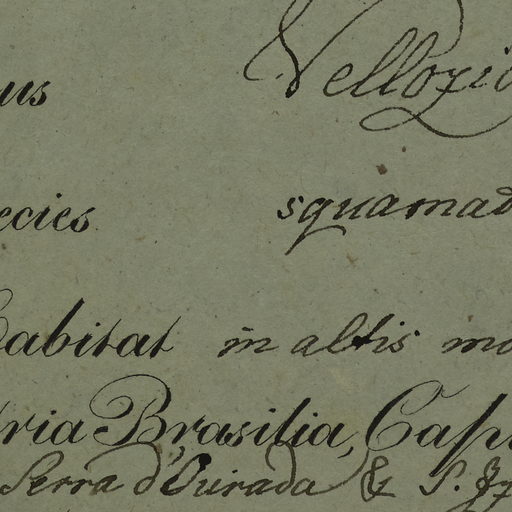 us Vellozi
ecies squamad
abitat in altis mo
tria Brasilia, Cap
Serra d'Ourada & S.